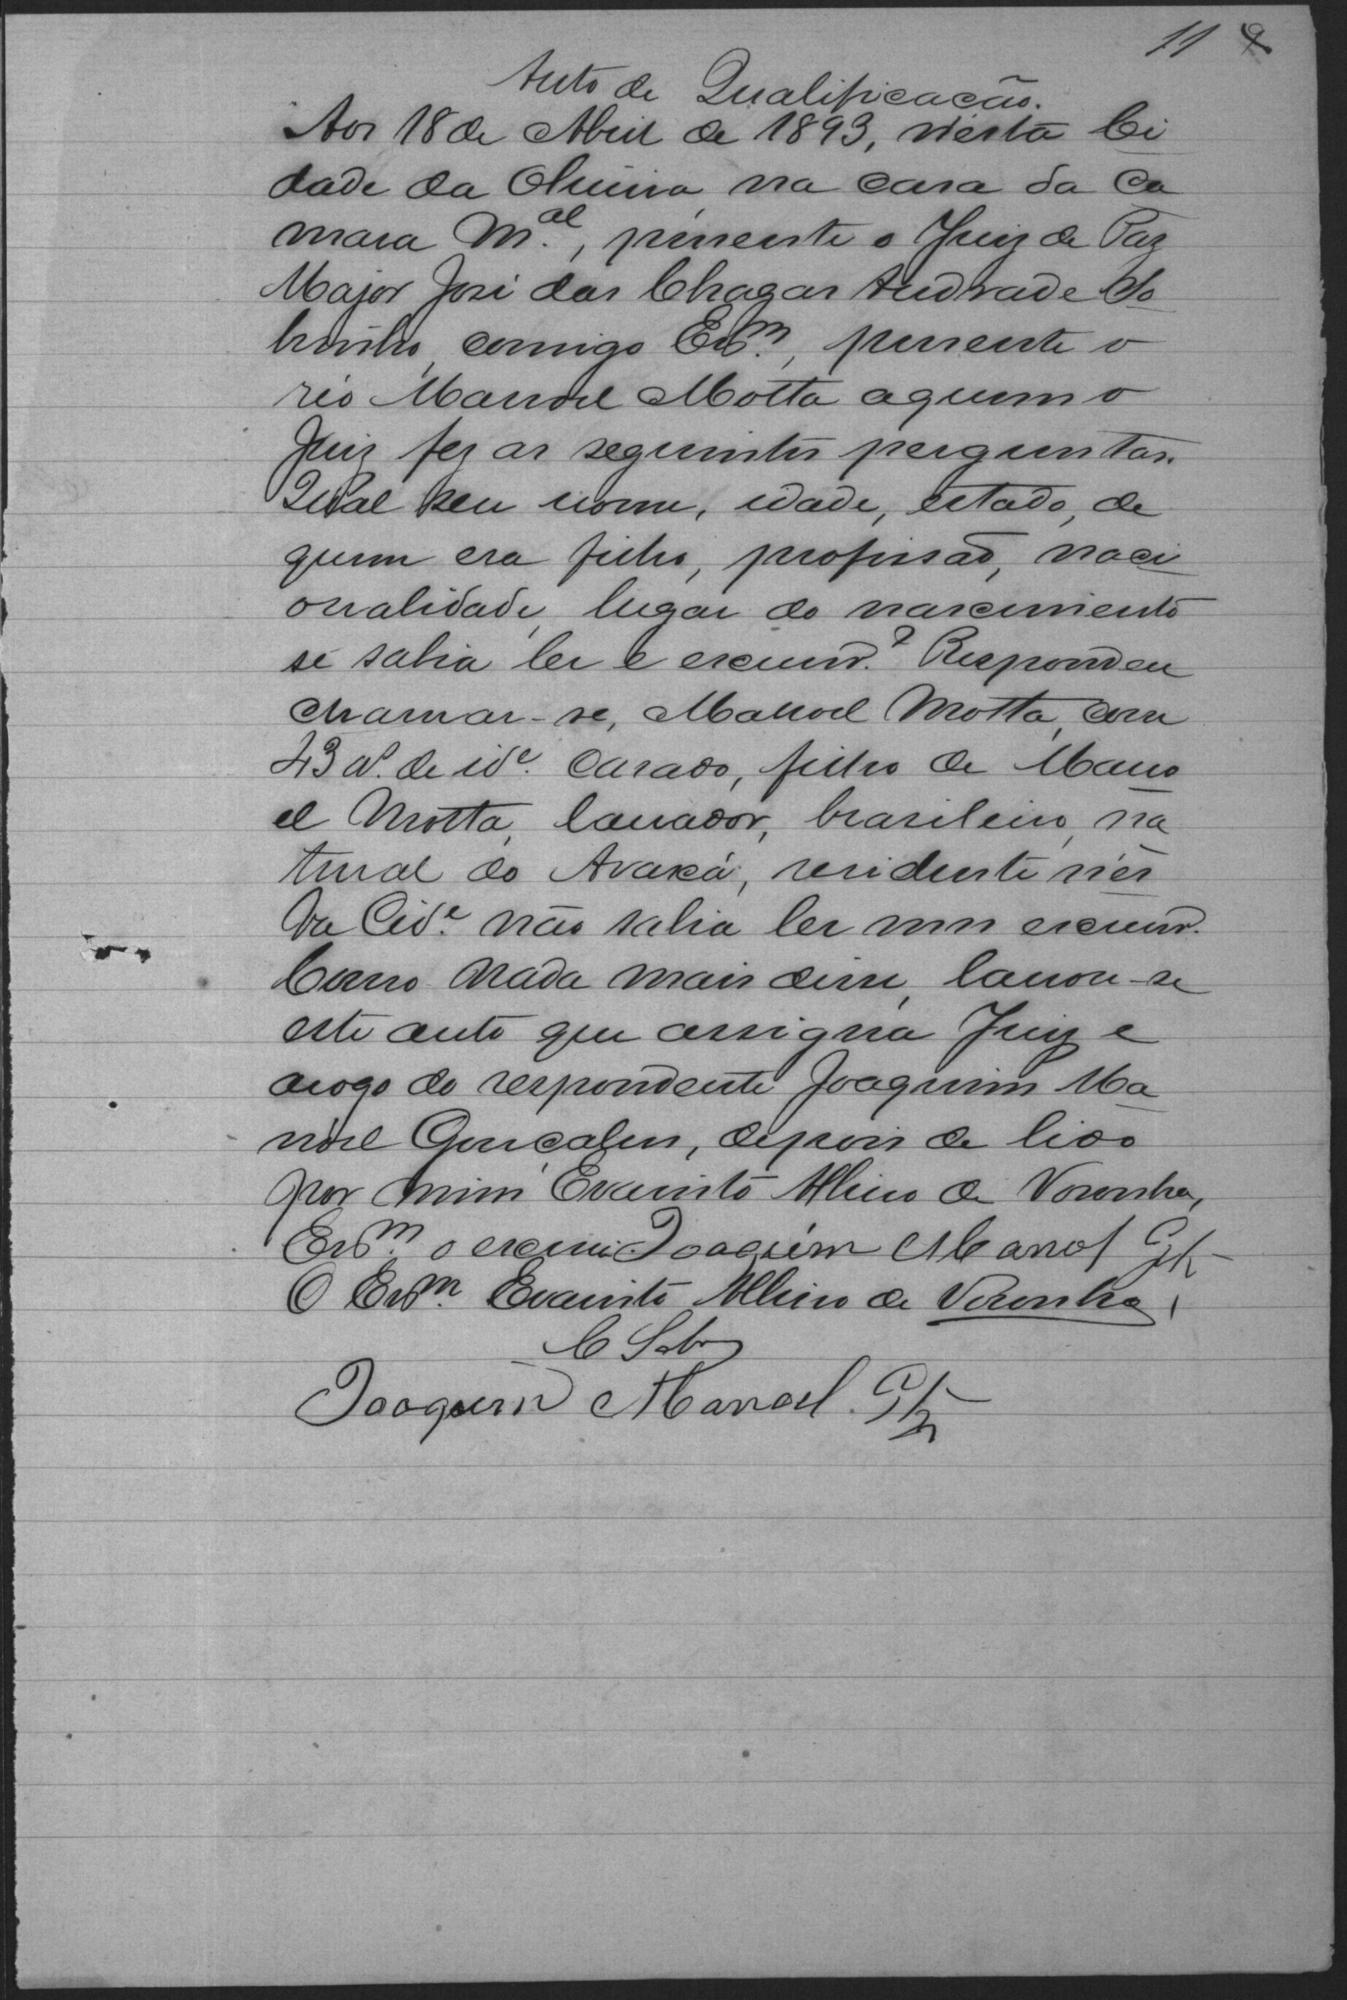 11 9
Auto de Qualificacão.
Aos 18 de Abril de 1893, n'esta Ci
dade da Oliveira na casa da Ca
mara M.al, presente o Juiz de Paz
Major José das Chagas Andrade So
brinho, comigo Esm., presente o
réo Manoel Motta aquem o
Juiz fez as seguintes perguntas.
Qual seu nome, idade, estado, de
quem era filho, profissão, naci
onalidade, lugar do nascimento
se sabia ler e escrever? Respondeu
chamar-se, Manoel Motta, com
43 a.s de id.e casado, filho de Mano
el Motta, lavrador, brasileiro, na
tural do Araxá, residente n'es
ta Cid.e não sabia ler nem escrever.
Como nada mais disse, lavrou-se
este auto que assigna Juiz e
arogo do respondente Joaquim Ma
noel Gonçalves, depois de lido
por mim Evaristo Albino de Noronha,
Esm. o escrevi. Joaquim Manoel Glz
O Esm. Evaristo Albino de Noronha,
C Sobr
Joaquim Manoel Glz